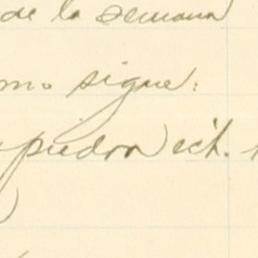 de la semana
mo sigue:
piedra ect.